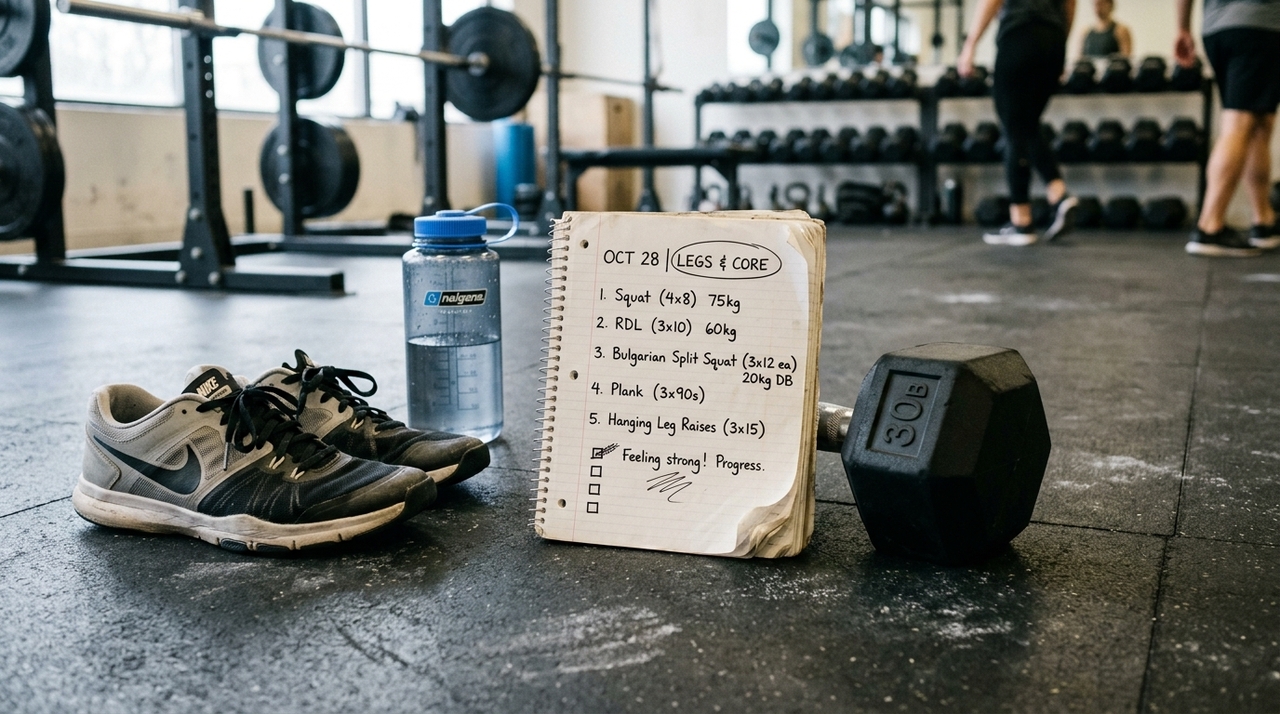 OCT 28 | LEGS & CORE
1. Squat (4x8) 75kg
2. RDL (3x10) 60kg
3. Bulgarian Split Squat (3x12 ea)
20kg DB
4. Plank (3x90s)
5. Hanging Leg Raises (3x15)
Feeling strong! Progress.
nalgene
NIKE
30B